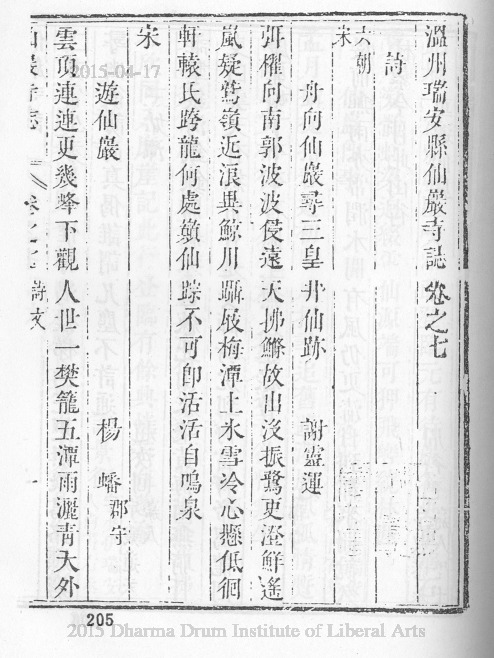 溫州瑞安縣仙巖寺誌卷之七
詩
六朝
宋
舟向仙巖尋三皇井仙跡　謝靈運
弭櫂向南郭波波侵遠天拂鰷故出沒振鷺更澄鮮遙
嵐疑鷲嶺近浪異鯨川躡屐梅潭上氷雪冷心懸低徊
軒轅氏跨龍何處巔仙踪不可即活活自鳴泉
宋
遊仙巖　楊蟠郡守
雲頂連連更幾峰下觀人世一樊籠五潭雨灑青天外
卷之七 詩文 一
205
2015-04-17
2015 Dharma Drum Institute of Liberal Arts